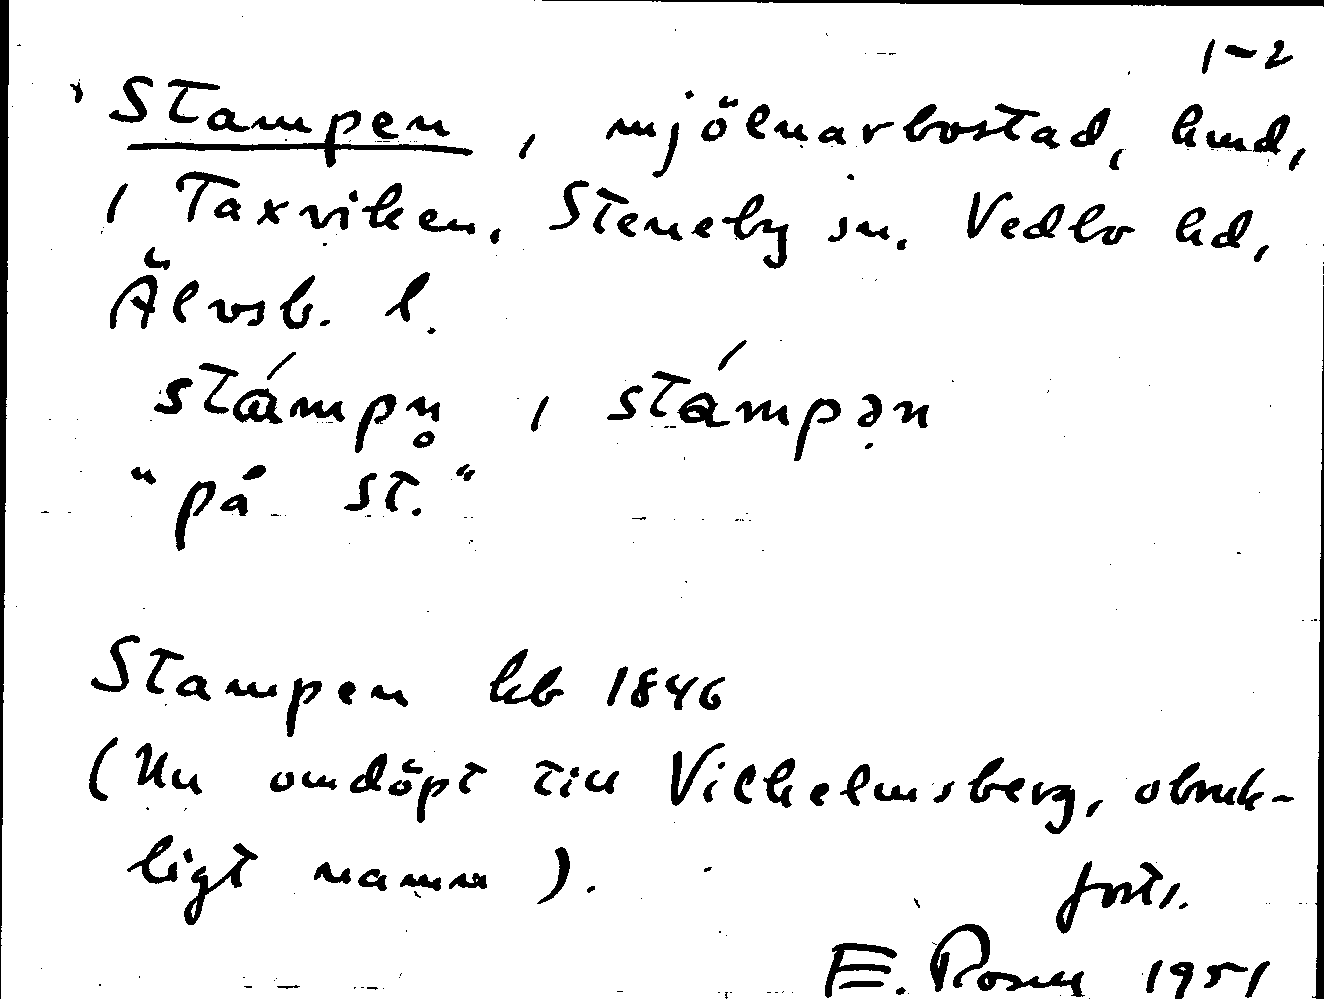 1-2
Stampen, mjölnarbostad, hmd,
i Taxviken, Steneby sn. Vedbo hd,
Älvsb. l.
stámpn̥, stámpən
"på st."
Stampen kb 1846
(Nu omdöpt till Vilhelmsberg, obruk-
ligt namn).
forts.
E. Rosell 1951